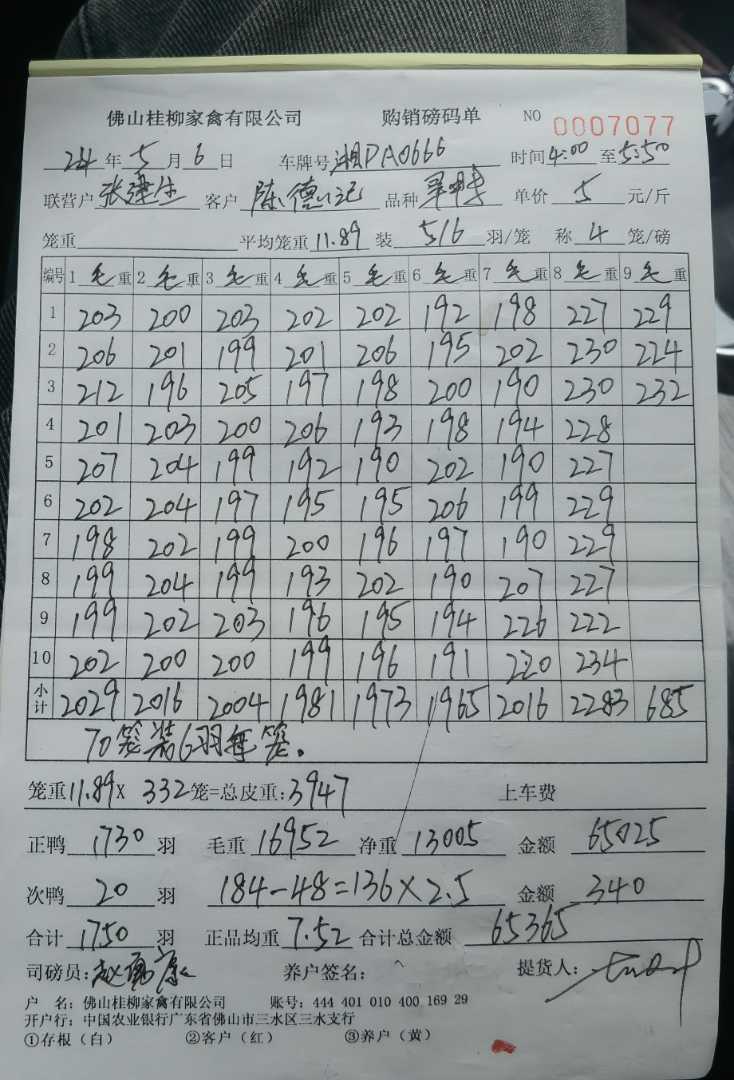 佛山桂柳家禽有限公司 购销磅码单 NO 0007077
24年5月6日 车牌号 湘DA0666 时间4:00至5:50
联营户 张建生 客户 陈德记 品种 单价 5 元/斤
笼重 平均笼重 11.89 装 5/6 羽/笼 称 4 笼/磅
编号 1 毛重 2 毛重 3 毛重 4 毛重 5 毛重 6 毛重 7 毛重 8 毛重 9 毛重
1 203 200 203 202 202 192 198 227 229
2 206 201 199 201 206 195 202 230 224
3 212 196 205 197 198 200 190 230 232
4 201 203 200 206 193 198 194 228
5 207 204 199 192 190 202 190 227
6 202 204 197 195 195 206 199 229
7 198 202 199 200 196 197 190 229
8 199 204 199 193 202 190 207 227
9 199 202 203 196 195 194 226 222
10 202 200 200 199 196 191 220 234
小计 2029 2016 2004 1981 1973 1965 2016 2283 685
70笼装6羽每笼.
笼重11.89X 332笼=总皮重:3947 上车费
正鸭 1730 羽 毛重 16952 净重 13005 金额 65025
次鸭 20 羽 184-48=136×2.5 金额 340
合计 1750 羽 正品均重 7.52 合计总金额 65365
司磅员: 养户签名: 提货人:
户 名:佛山桂柳家禽有限公司 账号:444 401 010 400 169 29
开户行:中国农业银行广东省佛山市三水区三水支行
①存根(白) ②客户(红) ③养户(黄)